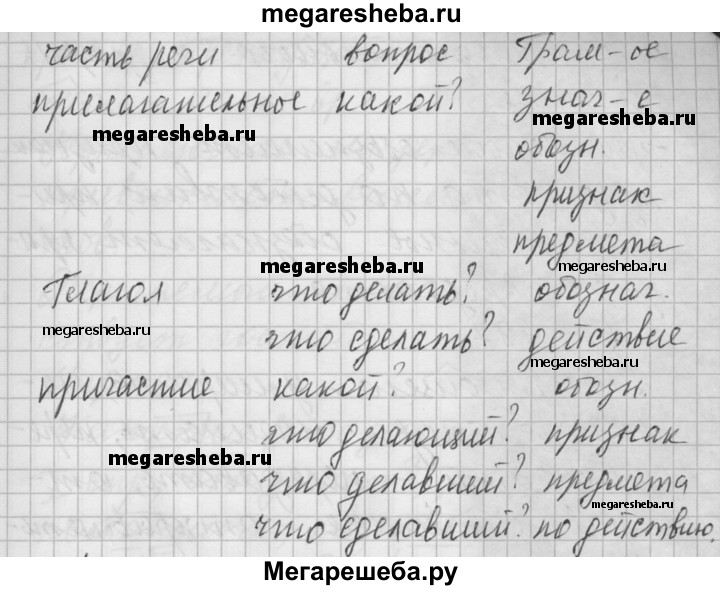 megaresheba.ru
часть речи вопрос Грам-ое
прилагательное какой? знач-е
megaresheba.ru megaresheba.ru
обозн.
признак
предмета
megaresheba.ru megaresheba.ru
Глагол что делать? обознач.
megaresheba.ru что сделать? действие
megaresheba.ru
причастие какой? обозн.
что делающий? признак
megaresheba.ru
что делавший? предмета
megaresheba.ru
что сделавший? по действию.
Мегарешеба.ру